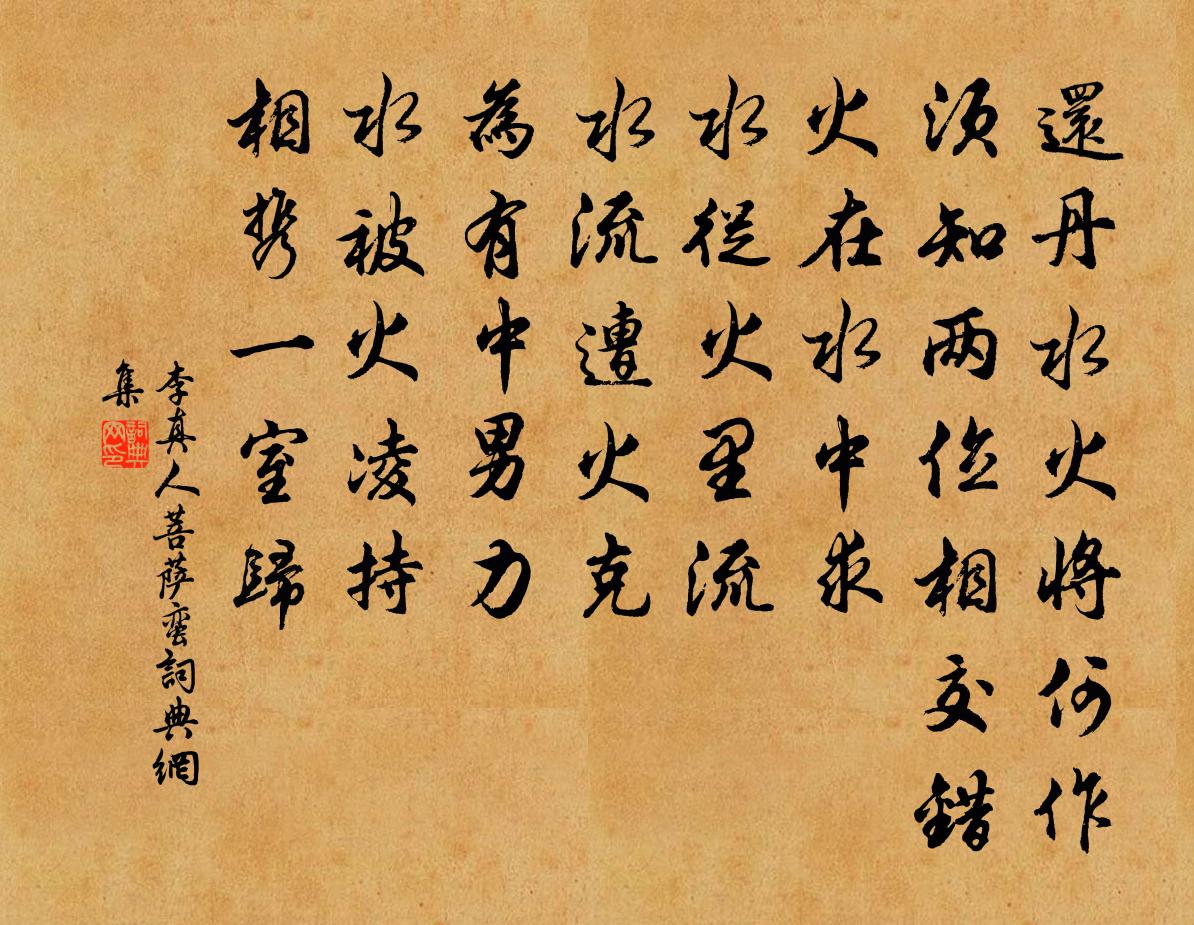 還丹水火將何作
須知兩位相交錯
火在水中求
水從火里流
水流遭火克
為有中男力
水被火凌持
相携一室歸
李真人菩薩蛮詞典網
集
詞典網印